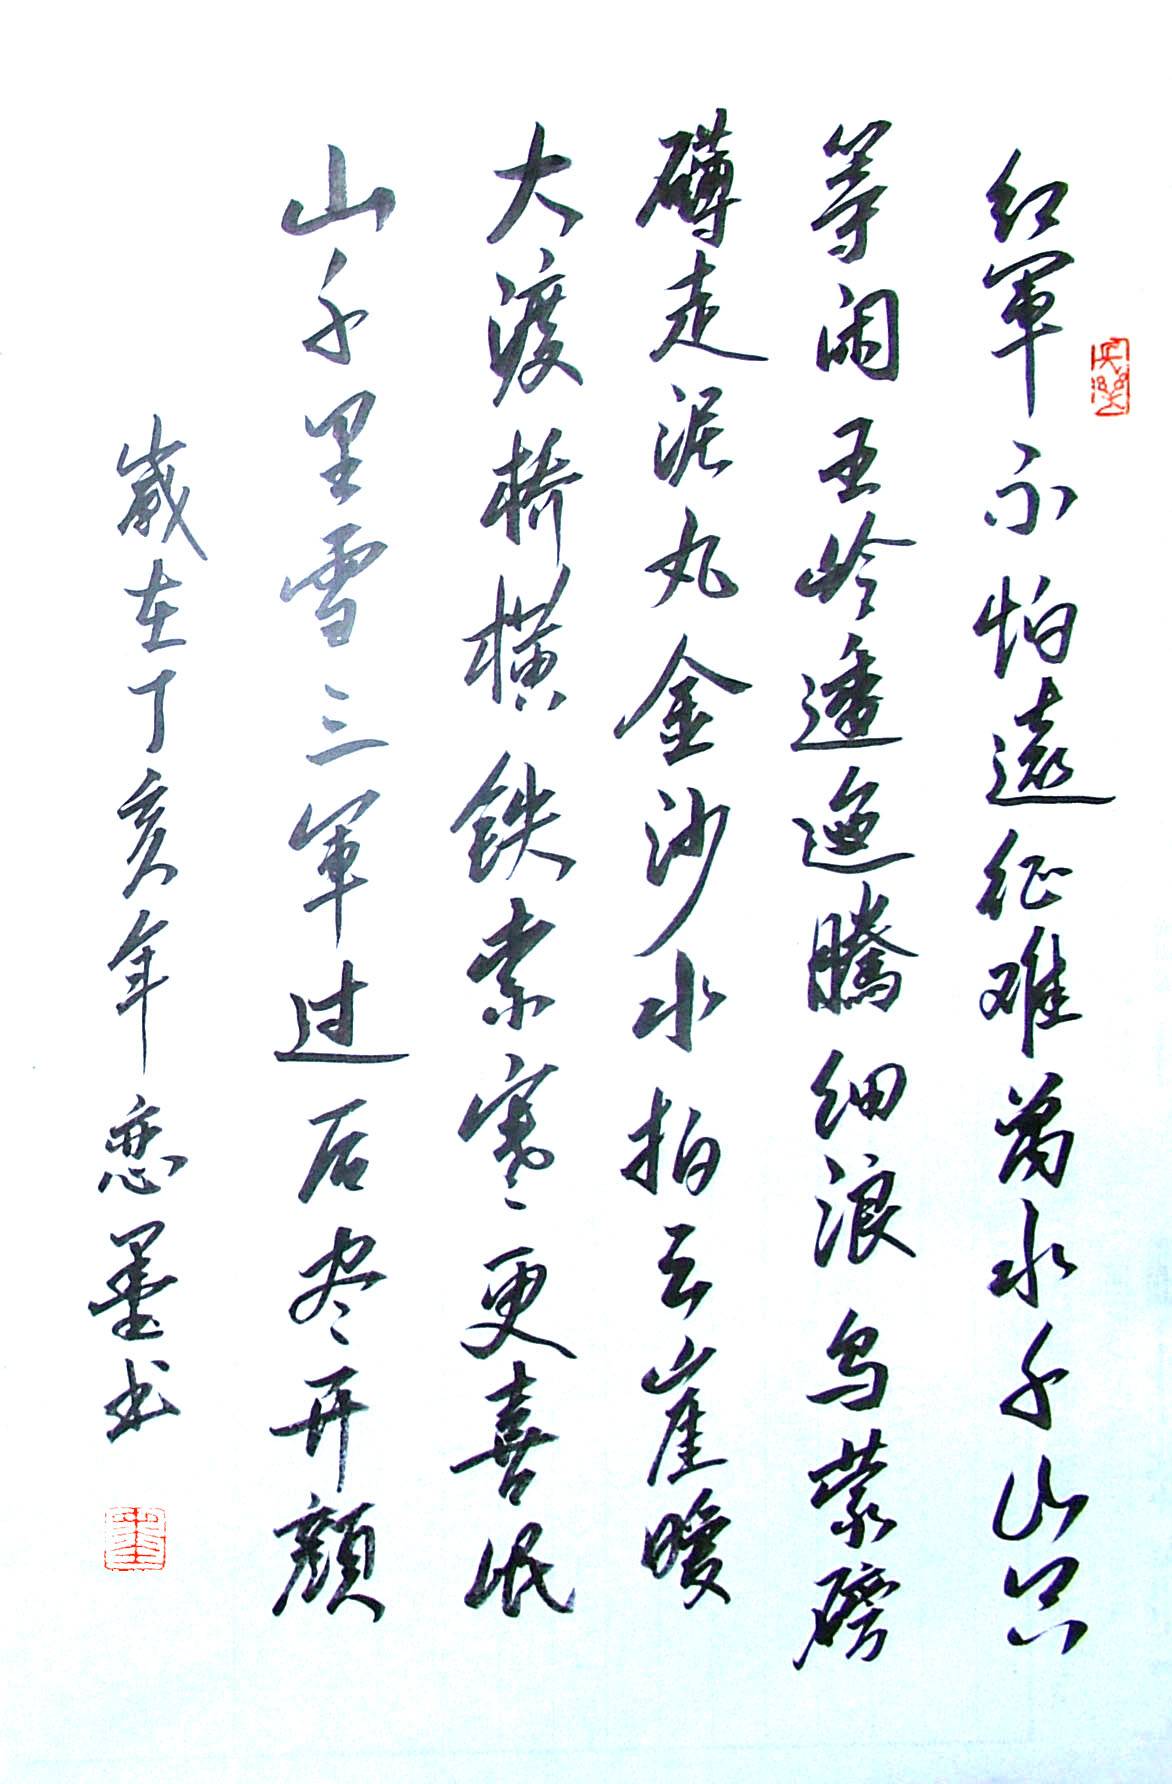 红军不怕遠征难萬水千山只
等闲五岭逶迤腾细浪乌蒙磅
礴走泥丸金沙水拍云崖暖
大渡桥横铁索寒更喜岷
山千里雪三军过后尽开颜
歲在丁亥年恋墨书